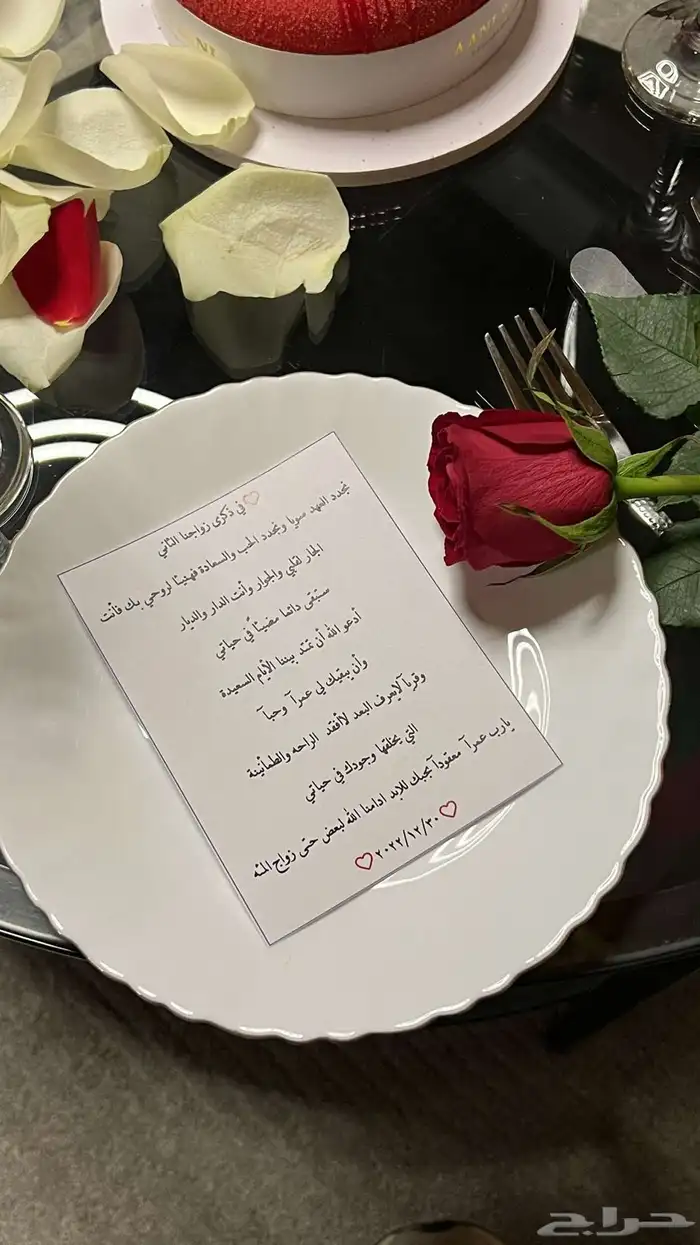 AANI
في ذكرى زواجنا الثاني
نجدد العهد سويا ونجدد الحب والسعادة فهنيئا لروحي بك فأنت
الجار لقلبي والجوار وأنت الدار والديار
ستبقى دائما مضيئاً في حياتي
أدعو الله أن تمتد بيننا الأيام السعيدة
وأن يبقيك لي عمراً وحباً
وقرباً لايعرف البعد لاأفقد الراحه والطمأنينة
التي يخلقها وجودك في حياتي
يارب عمراً معقوداً بحبك للابد ادامنا الله لبعض حتى زواج الجنه
٢٠٢٢/١٢/٣٠
حراج